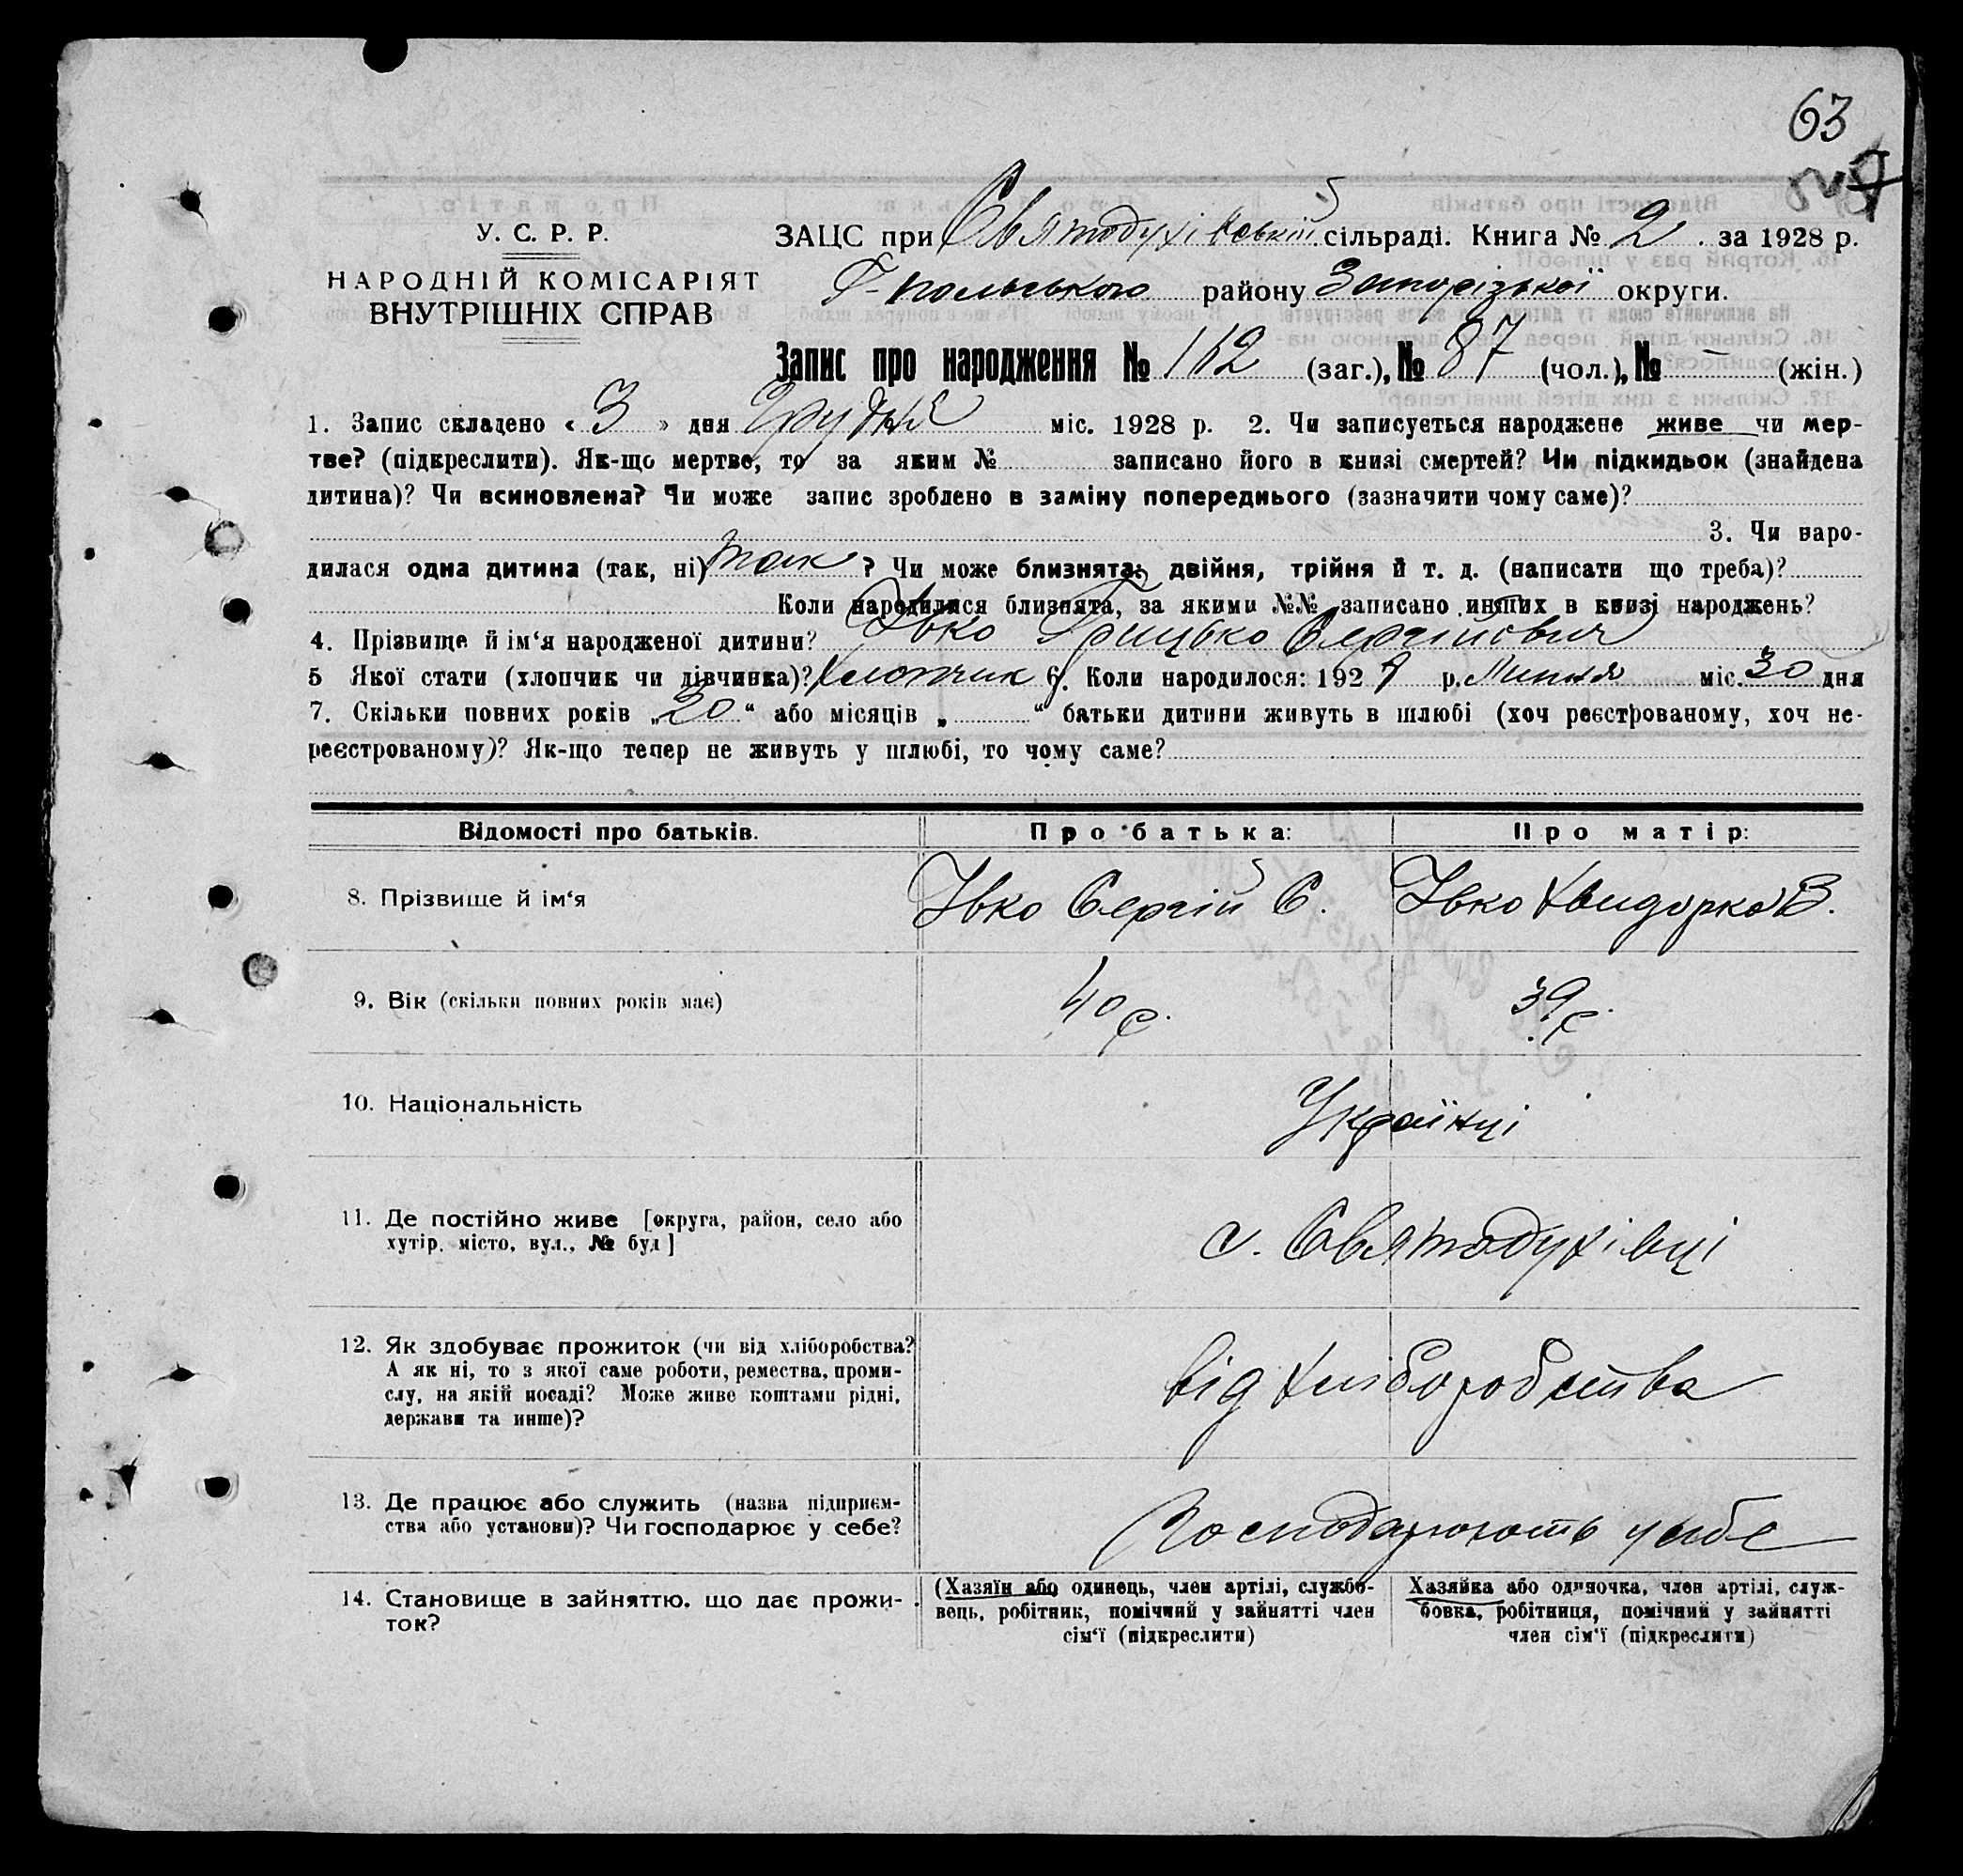 63
У. С. Р. Р.
НАРОДНІЙ КОМІСАРІЯТ
ВНУТРІШНІХ СПРАВ
ЗАЦС при Святодухівській сільраді. Книга № 2. за 1928 р.
Г-польського району Запорізької округи.
Запис про народження № 162 (заг.), № 87 (чол.), № – (жін.)
1. Запис складено « 3 » дня Грудня міс. 1928 р. 2. Чи записується народжене живе чи мер-
тве? (підкреслити). Як-що мертве, то за яким № записано його в книзі смертей? Чи підкидьок (знайдена
дитина)? Чи всиновлена? Чи може запис зроблено в заміну попереднього (зазначити чому саме)?
3. Чи наро-
дилася одна дитина (так, ні) так ? Чи може близнята: двійня, трійня й т. д. (написати що треба)?
Коли народилися близнята, за якими №№ записано инших в книзі народжень?
4. Прізвище й ім‘я народженої дитини? Івко Грицько Сергійович
5 Якої стати (хлопчик чи дівчинка)? Хлопчик 6. Коли народилося: 192 р. Липня міс. 30 дня
7. Скільки повних років „20“ або місяців „ “ батьки дитини живуть в шлюбі (хоч реєстрованому, хоч не-
реєстрованому)? Як-що тепер не живуть у шлюбі, то чому саме?
Відомості про батьків. Про батька: Про матір:
8. Прізвище й ім‘я Івко Сергій С. Івко Хвидорка В.
9. Вік (скільки повних років має) 40 р. 39 р.
10. Національність Українці
11. Де постійно живе [округа, район, село або
хутір, місто, вул., № буд]
с. Святодухівці
12. Як здобуває прожиток (чи від хліборобства?
А як ні, то з якої саме роботи, ремества, проми-
слу, на якій посаді? Може живе коштами рідні,
держави та инше)?
від хліборобства
13. Де працює або служить (назва підприєм-
ства або установи)? Чи господарює у себе?
Господарюють у себе
14. Становище в зайняттю, що дає прожи-
ток?
(Хазяїн або одинець, член артілі, службо-
вець, робітник, помічний у зайнятті член
сім‘ї (підкреслити)
Хазяйка або одиночка, член артілі, служ-
бовка, робітниця, помічний у зайнятті
член сім‘ї (підкреслити)